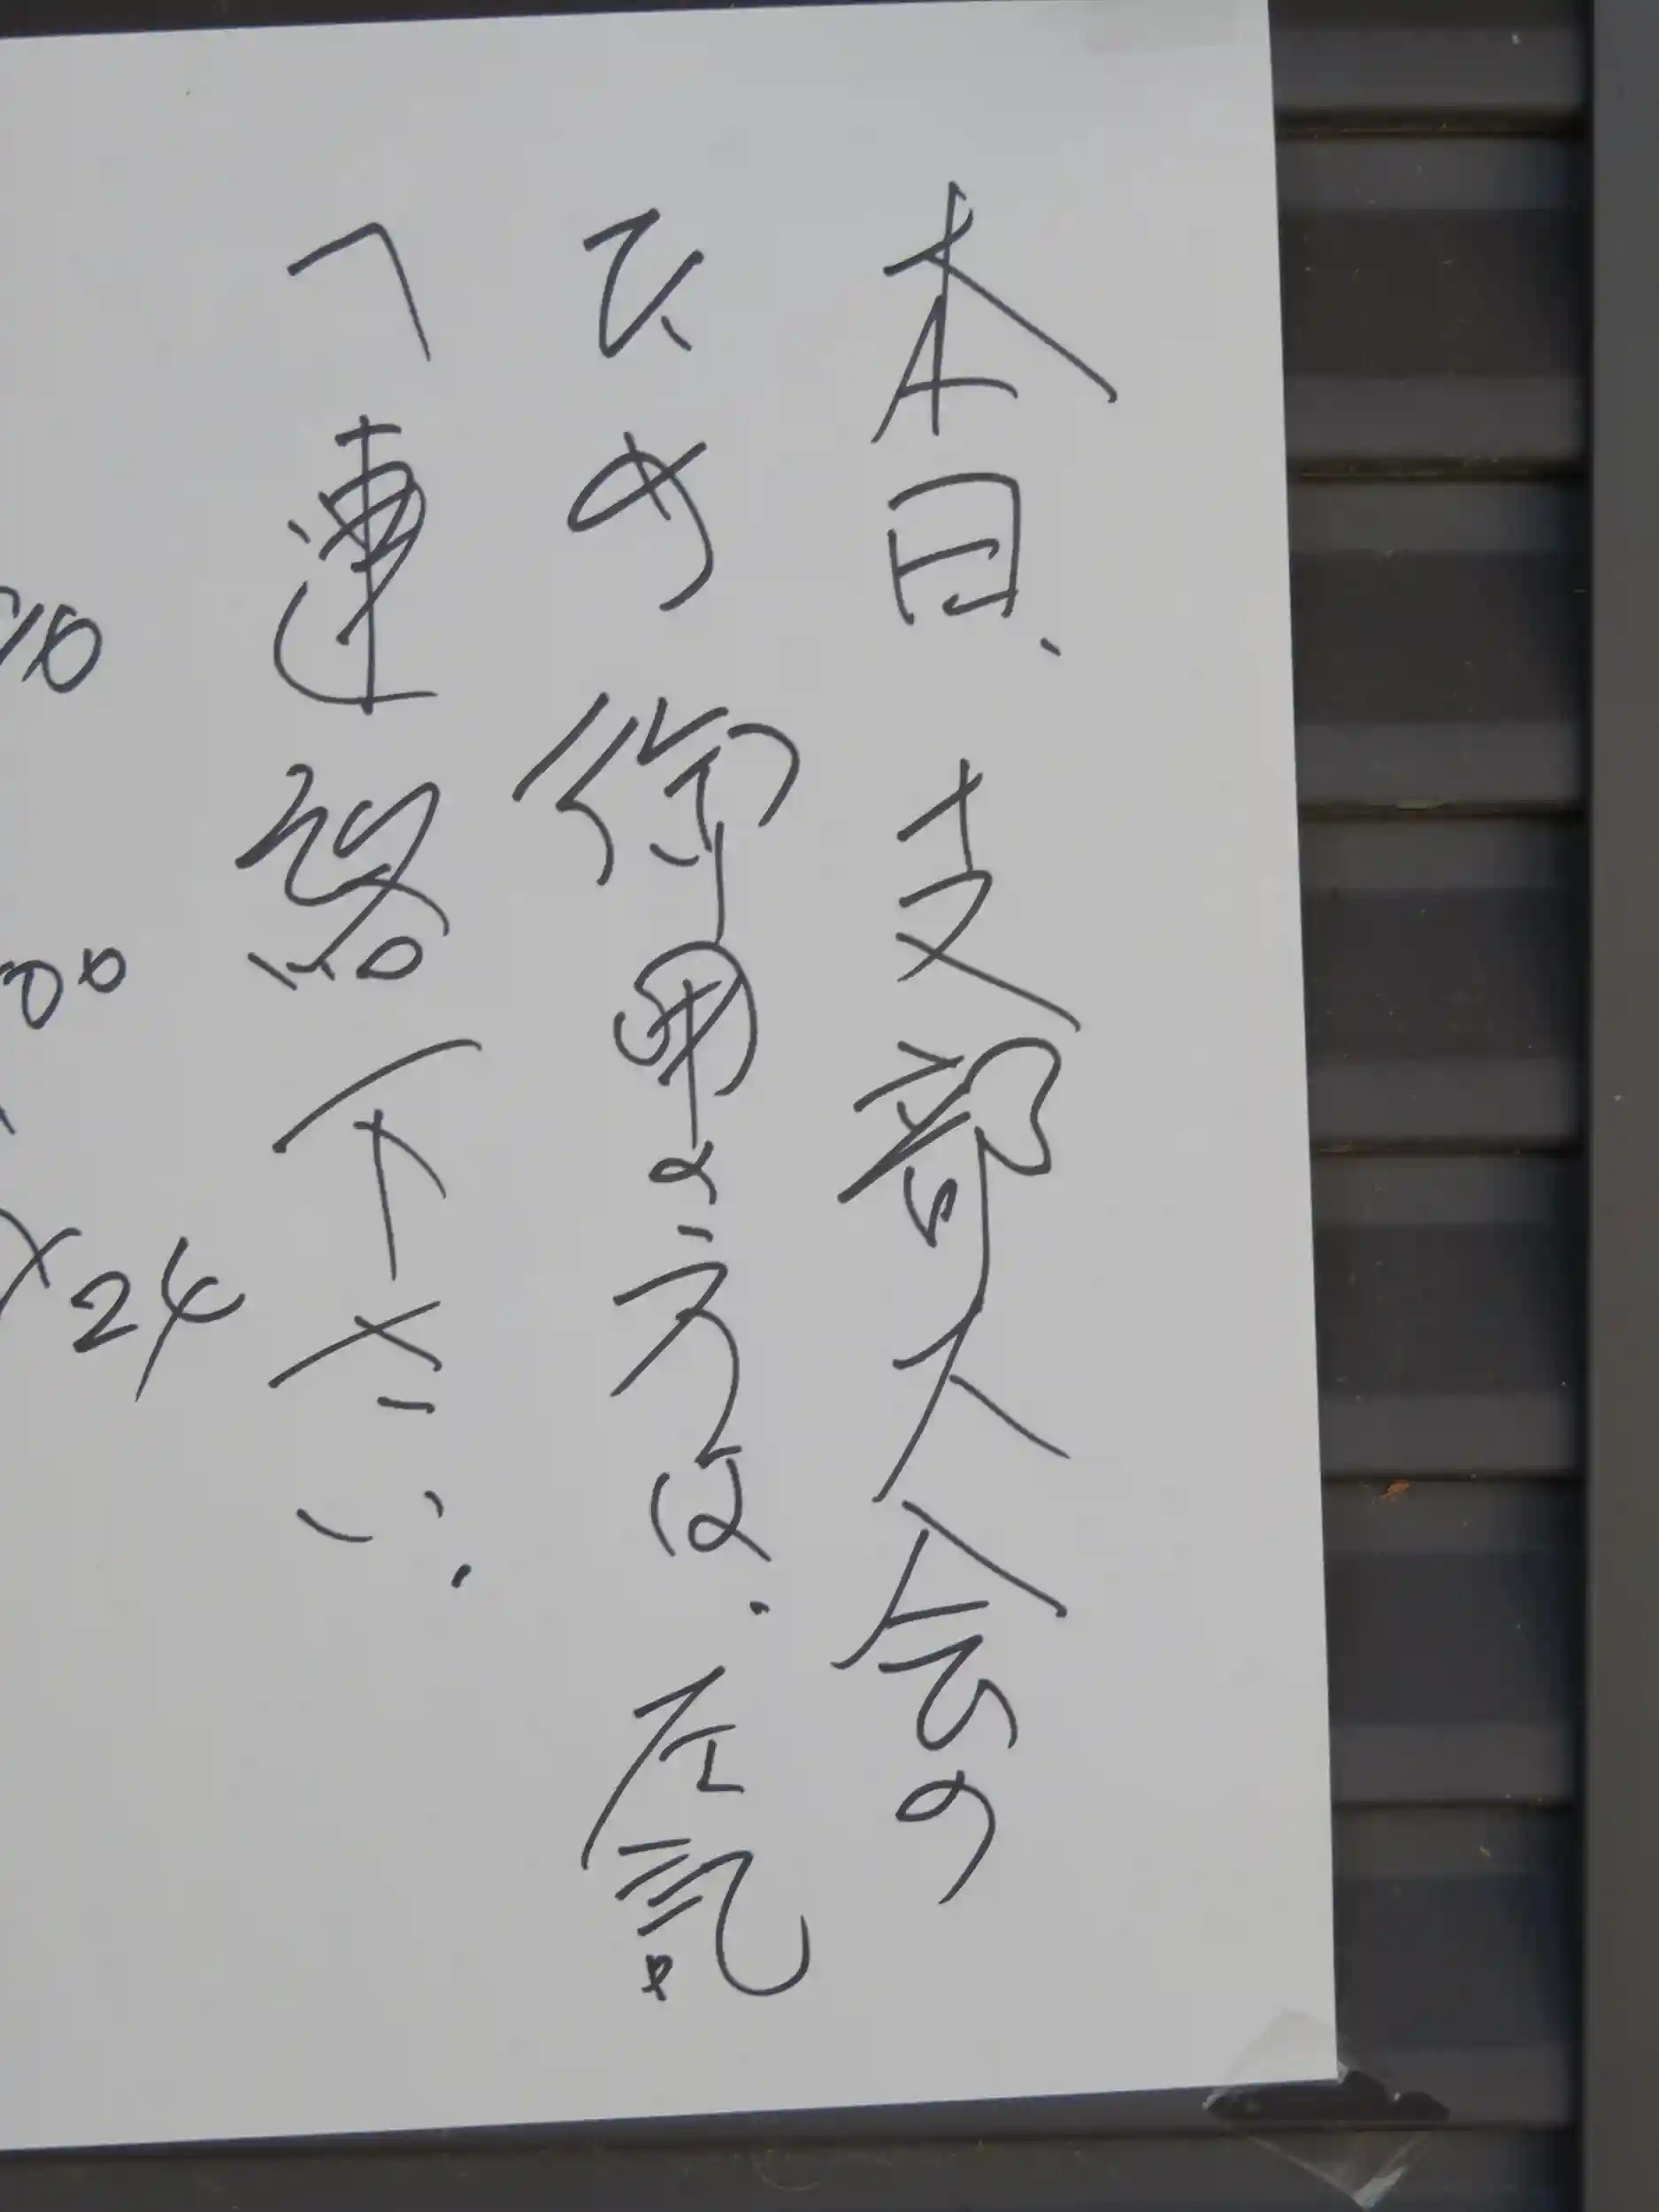 本日、支部大会の
ため御用の方は、左記
へ連絡下さい。
24